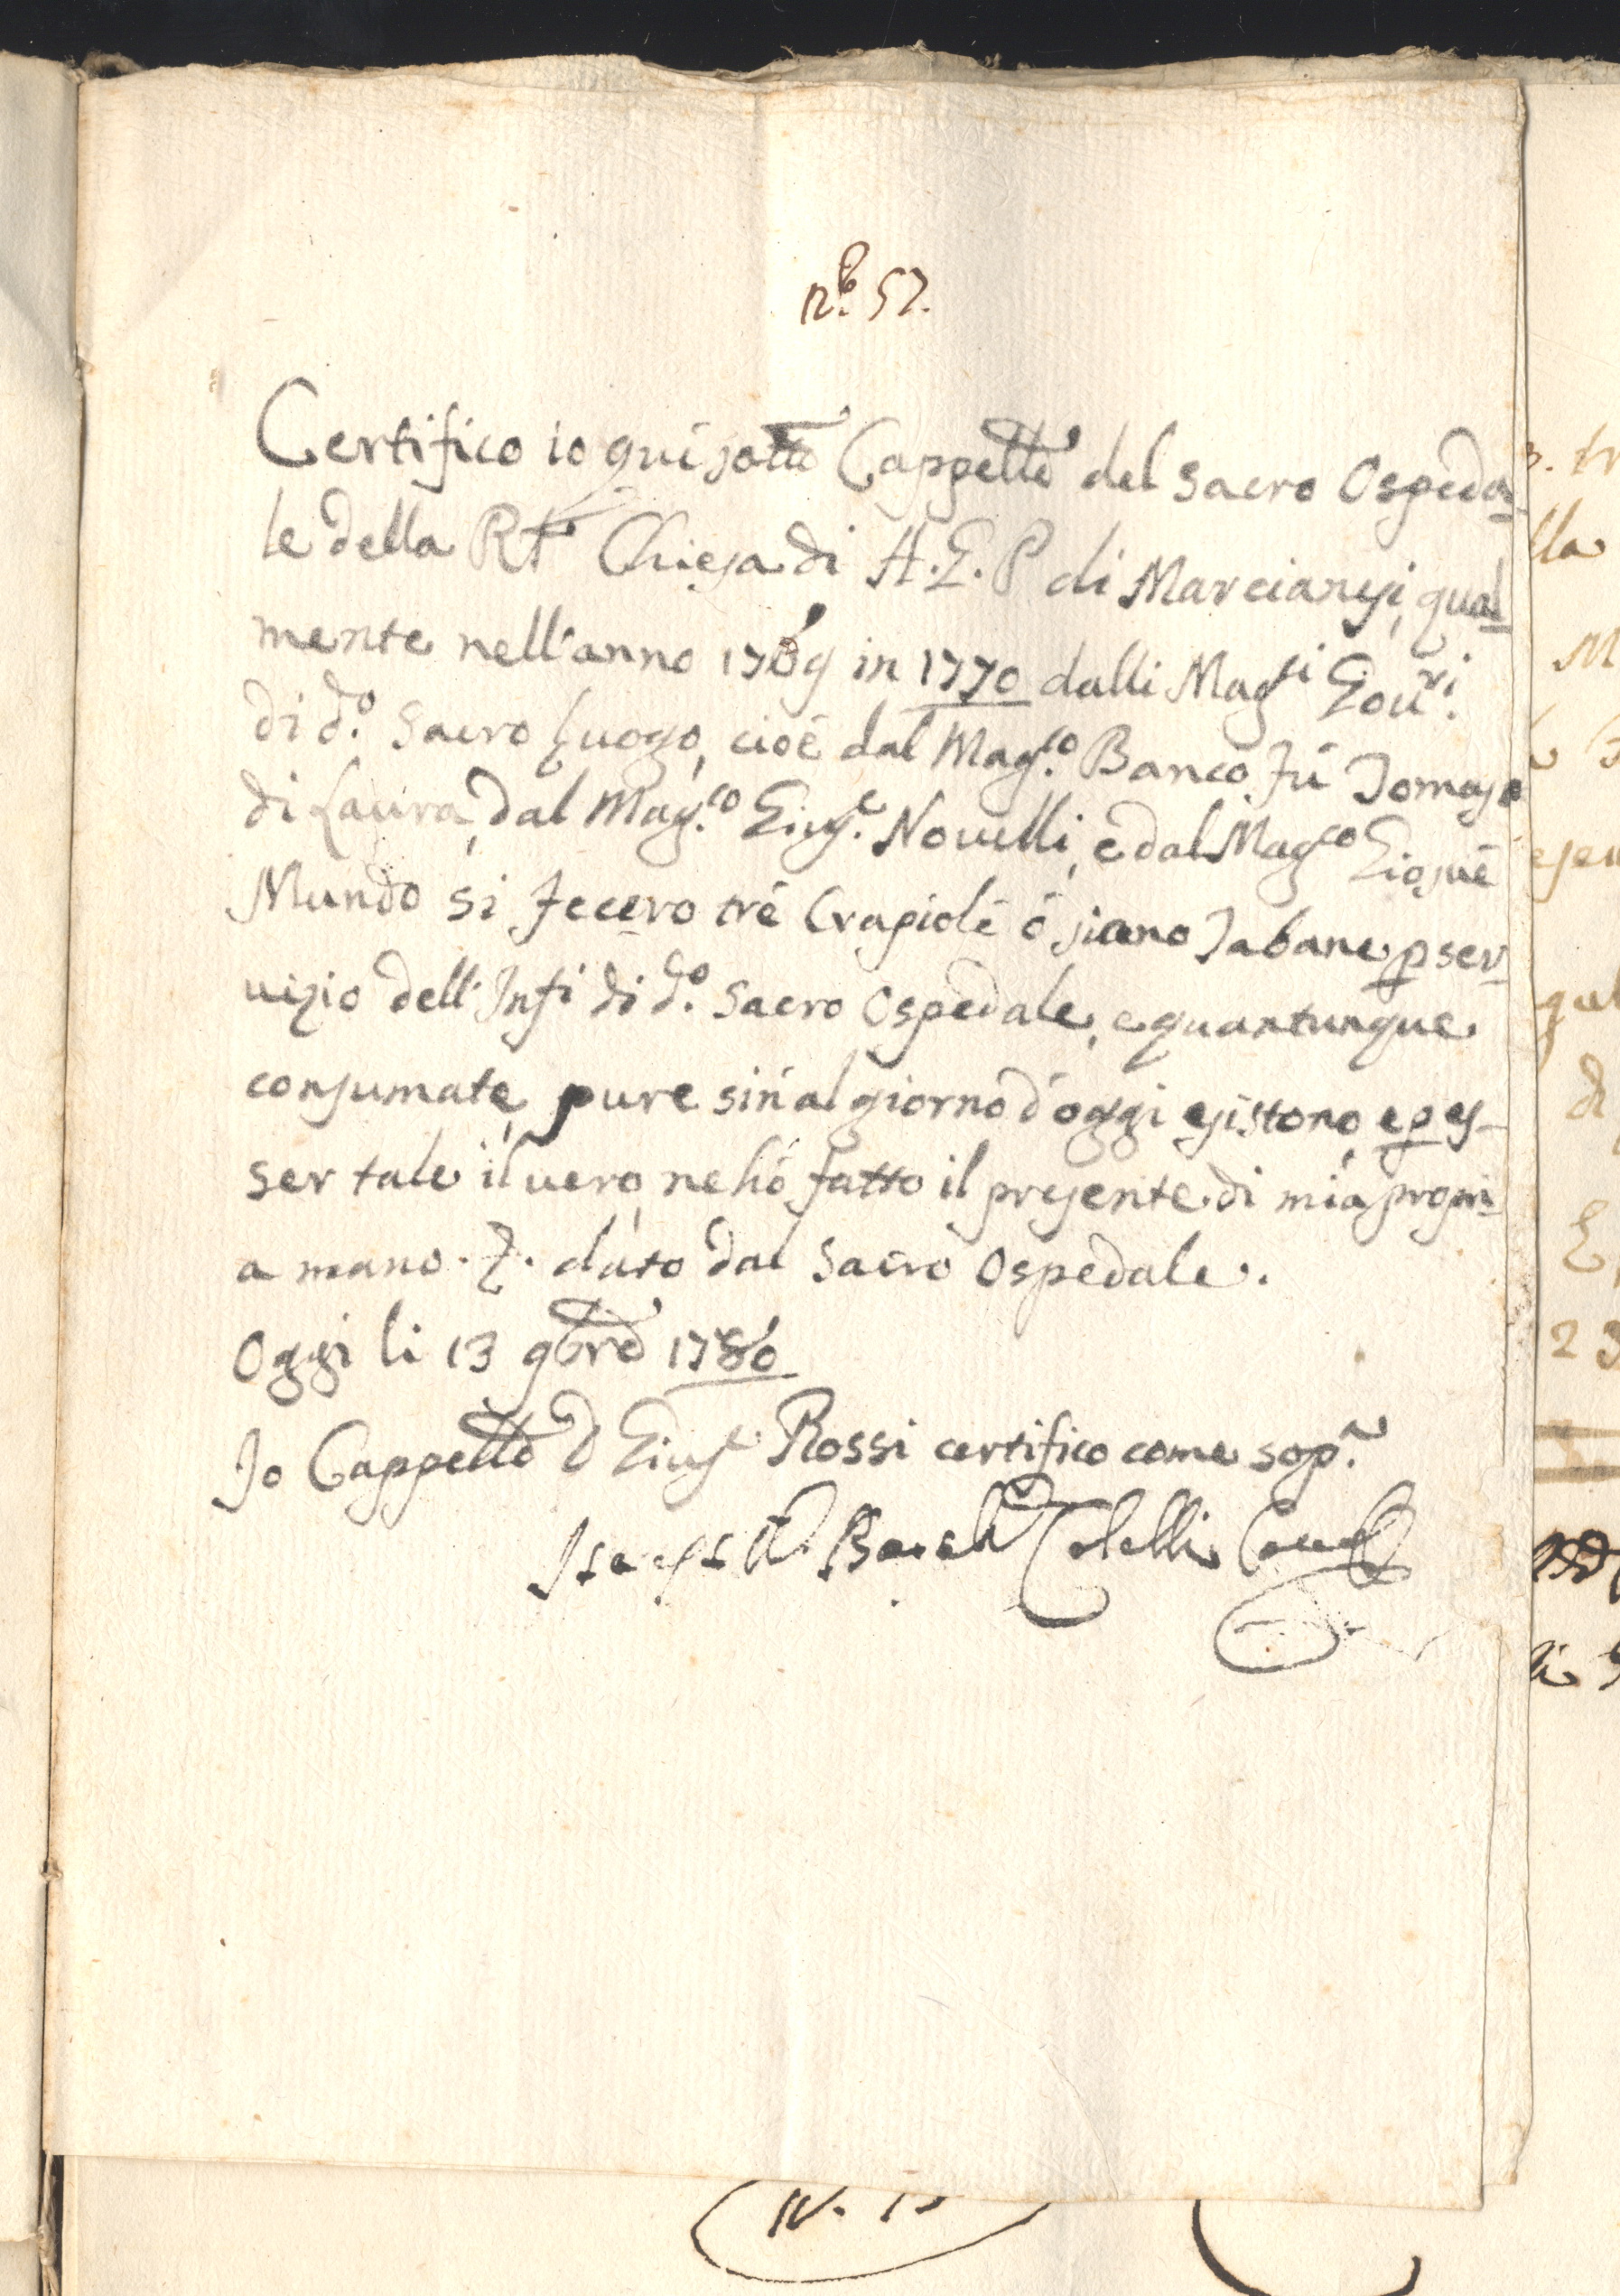 N.o 57.
Certifico io quí sotto Cappello del Sacro Ospeda-
le della Rl Chiesa di A.G.P di Marcianisi, qual-
mente nell'anno 1769 in 1770 dalli Magci Gou.ri
di d.o Sacro Luogo, cioè dal Mag.co Banco fú Tomaso
di Laura, dal Mag.co Gius.e Nouelli, e dal Magco Giosuè
Mundo si fecero trè Crapiole ó siano Tabane p ser-
uizio dell'Infi di d.o Sacro Ospedale, e quantunque
consumate, pure sin'al giorno d'oggi esistono, e p es-
ser tale il uero, ne hó fatto il presente di mia propri-
a mano. dato dal Sacro Ospedale.
Oggi li 13 9bre 1786
Io Cappello D Giuse Rossi certifico come sop.a